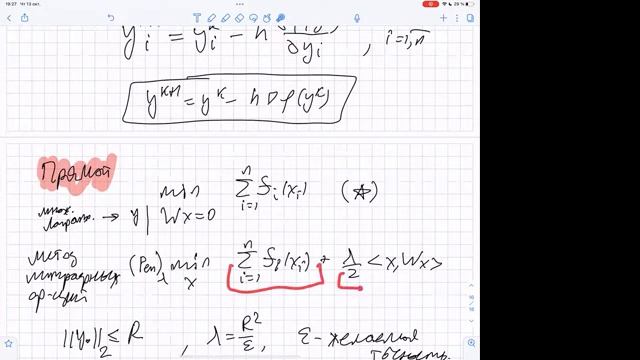 19:27 Чт 13 окт.
29 %
y_i = y_i^k − h ∂yi , i=1,n
y^{k+1} = y^k − h∇φ(y^k)
Прямой
min ∑_{i=1}^{n} f_i(x_i) (☆)
множ. Лагранж. → y | Wx=0
метод штрафных ф-ций (Pen)_λ min_x ∑_{i=1}^{n} f_i(x_i) + λ/2 <x,Wx>
||y_*||_2 ≤ R , λ = R²/ε , ε - желаемая точность.